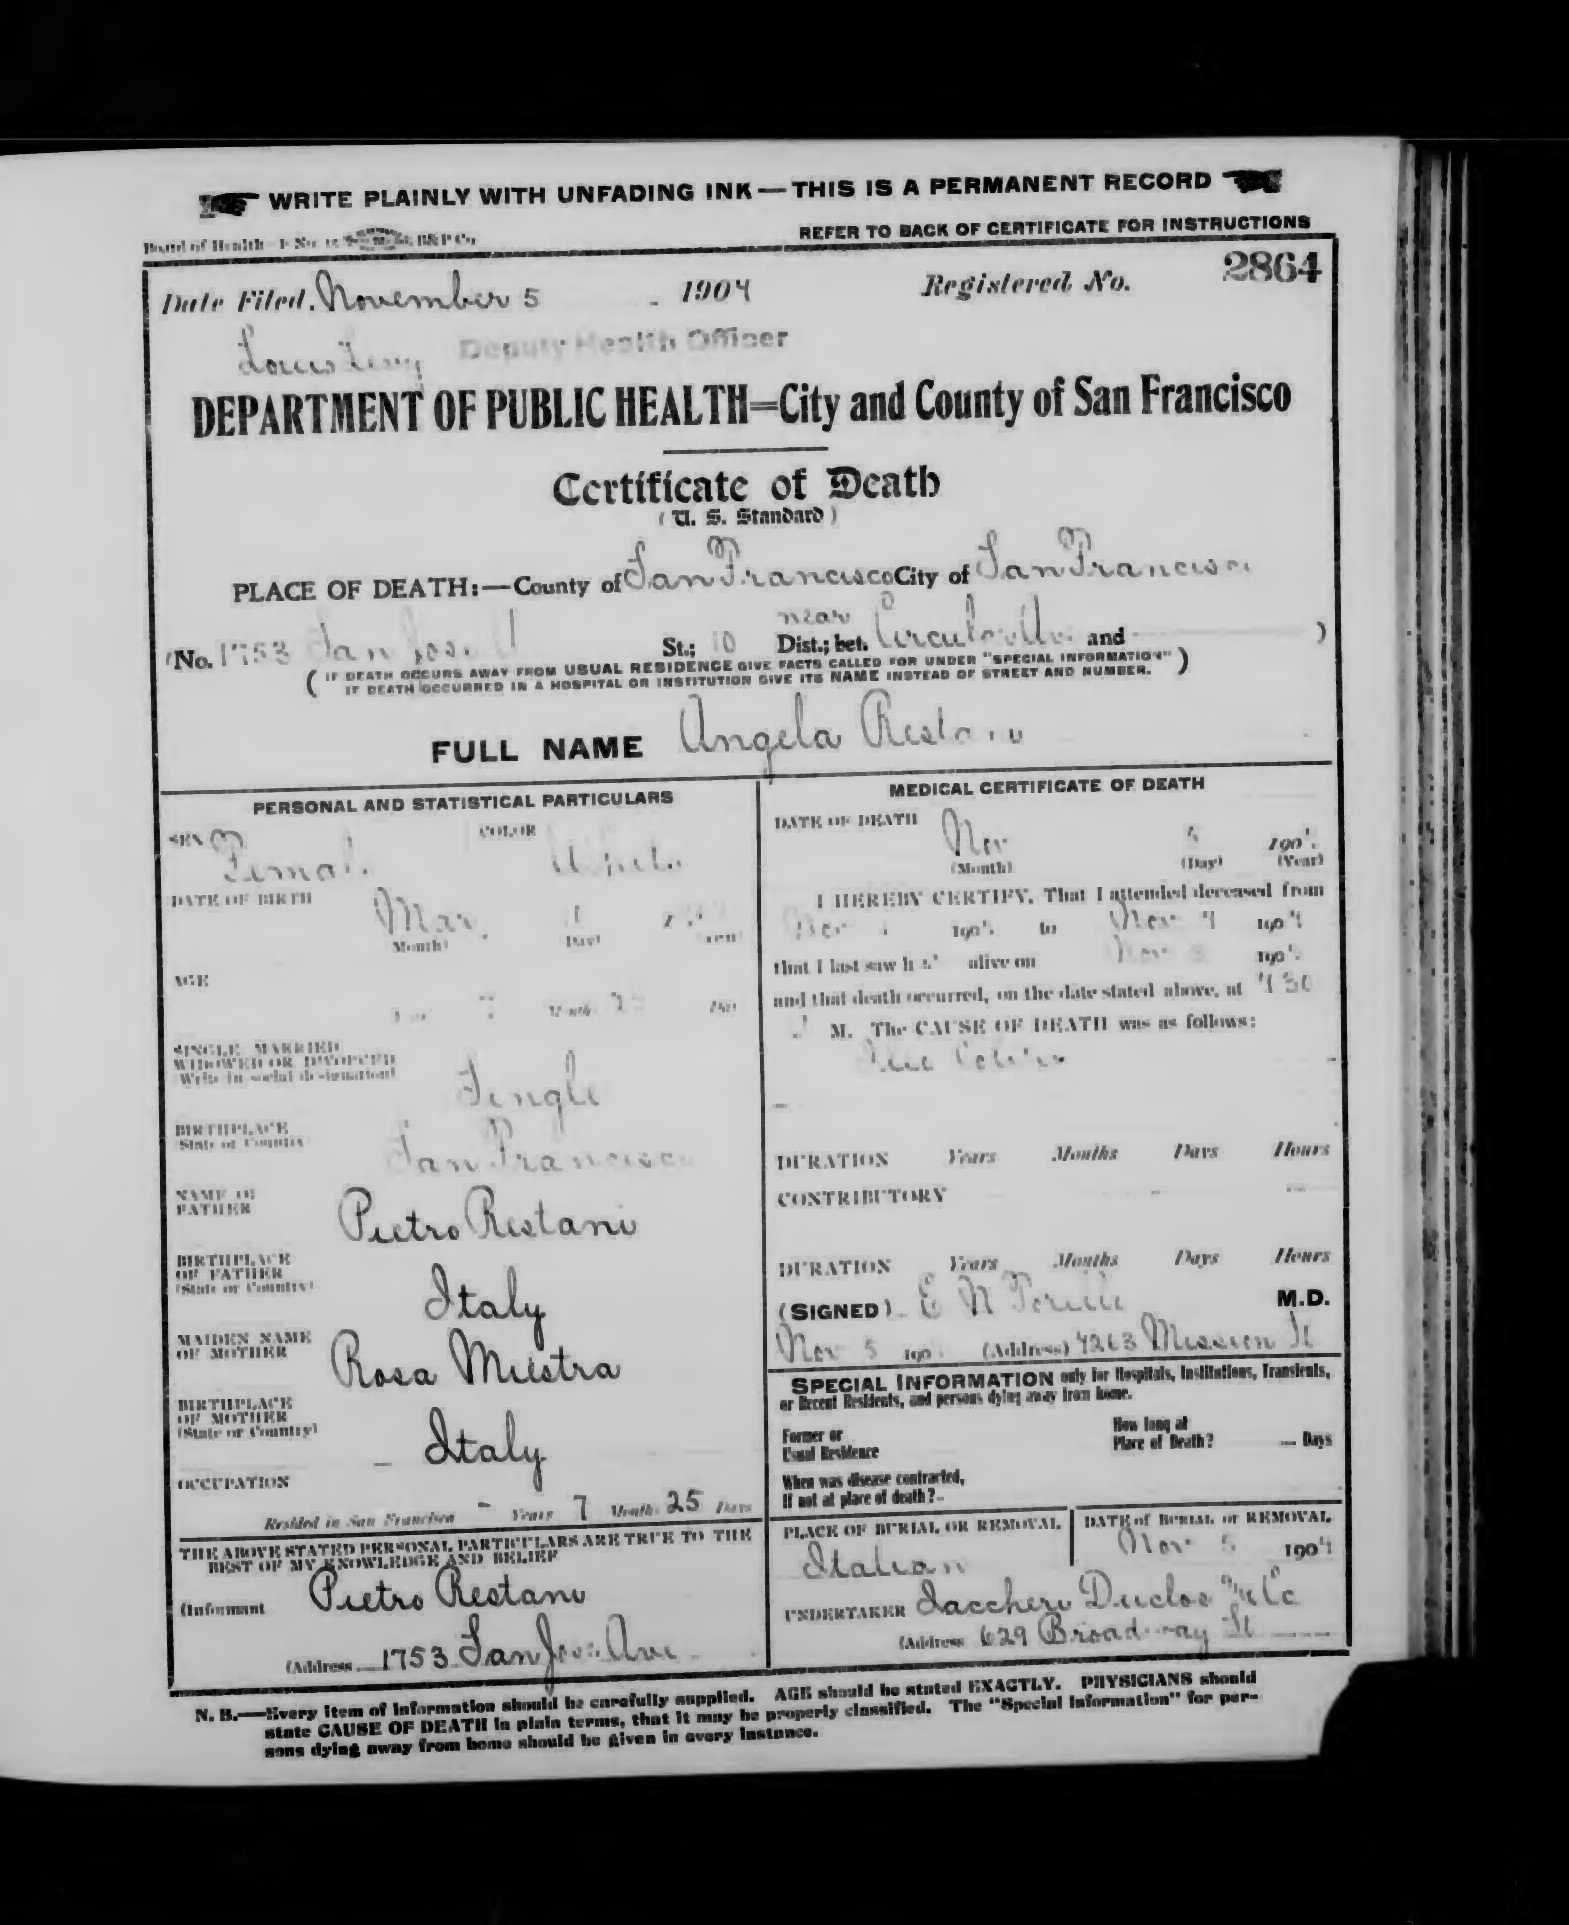 WRITE PLAINLY WITH UNFADING INK — THIS IS A PERMANENT RECORD
Board of Health B&P Co.
REFER TO BACK OF CERTIFICATE FOR INSTRUCTIONS
Date Filed, November 5 1904 Registered No. 2864
Louis Levy Deputy Health Officer
DEPARTMENT OF PUBLIC HEALTH=City and County of San Francisco
Certificate of Death
(U. S. Standard)
PLACE OF DEATH:—County of San Francisco City of San Francisco
near
(No. 1753 San Jose St.; 10 Dist.; bet. Circular Ave and )
( IF DEATH OCCURS AWAY FROM USUAL RESIDENCE GIVE FACTS CALLED FOR UNDER "SPECIAL INFORMATION" )
IF DEATH OCCURRED IN A HOSPITAL OR INSTITUTION GIVE ITS NAME INSTEAD OF STREET AND NUMBER.
FULL NAME Angela Restani
PERSONAL AND STATISTICAL PARTICULARS
SEX Female COLOR White
DATE OF BIRTH
Mar
(Month) (Day) (Year)
AGE
7 Months Days
SINGLE, MARRIED
WIDOWED OR DIVORCED
(Write in social designation)
Single
BIRTHPLACE
(State or Country)
San Francisco
NAME OF
FATHER
Pietro Restani
BIRTHPLACE
OF FATHER
(State or Country)
Italy
MAIDEN NAME
OF MOTHER
Rosa Mustra
BIRTHPLACE
OF MOTHER
(State or Country)
Italy
OCCUPATION
Resided in San Francisco - Years 7 Months 25 Days
THE ABOVE STATED PERSONAL PARTICULARS ARE TRUE TO THE
BEST OF MY KNOWLEDGE AND BELIEF
(Informant Pietro Restani
(Address 1753 San Jose Ave
MEDICAL CERTIFICATE OF DEATH
DATE OF DEATH
Nov 190
(Month) (Day) (Year)
I HEREBY CERTIFY, That I attended deceased from
Nov 190 to Nov 4 1904
that I last saw h alive on Nov 190
and that death occurred, on the date stated above, at 4 30
M. The CAUSE OF DEATH was as follows:
DURATION Years Months Days Hours
CONTRIBUTORY
DURATION Years Months Days Hours
(SIGNED) E N M.D.
Nov 5 190 (Address) 4263 Mission St
SPECIAL INFORMATION only for Hospitals, Institutions, Transients,
or Recent Residents, and persons dying away from home.
Former or
Usual Residence
How long at
Place of Death? Days
When was disease contracted,
If not at place of death?
PLACE OF BURIAL OR REMOVAL
Italian
DATE of BURIAL or REMOVAL
Nov 5 1904
UNDERTAKER Iaccheri Duclos & Co
(Address 629 Broadway St
N. B.—Every item of information should be carefully supplied. AGE should be stated EXACTLY. PHYSICIANS should
state CAUSE OF DEATH in plain terms, that it may be properly classified. The "Special Information" for per-
sons dying away from home should be given in every instance.